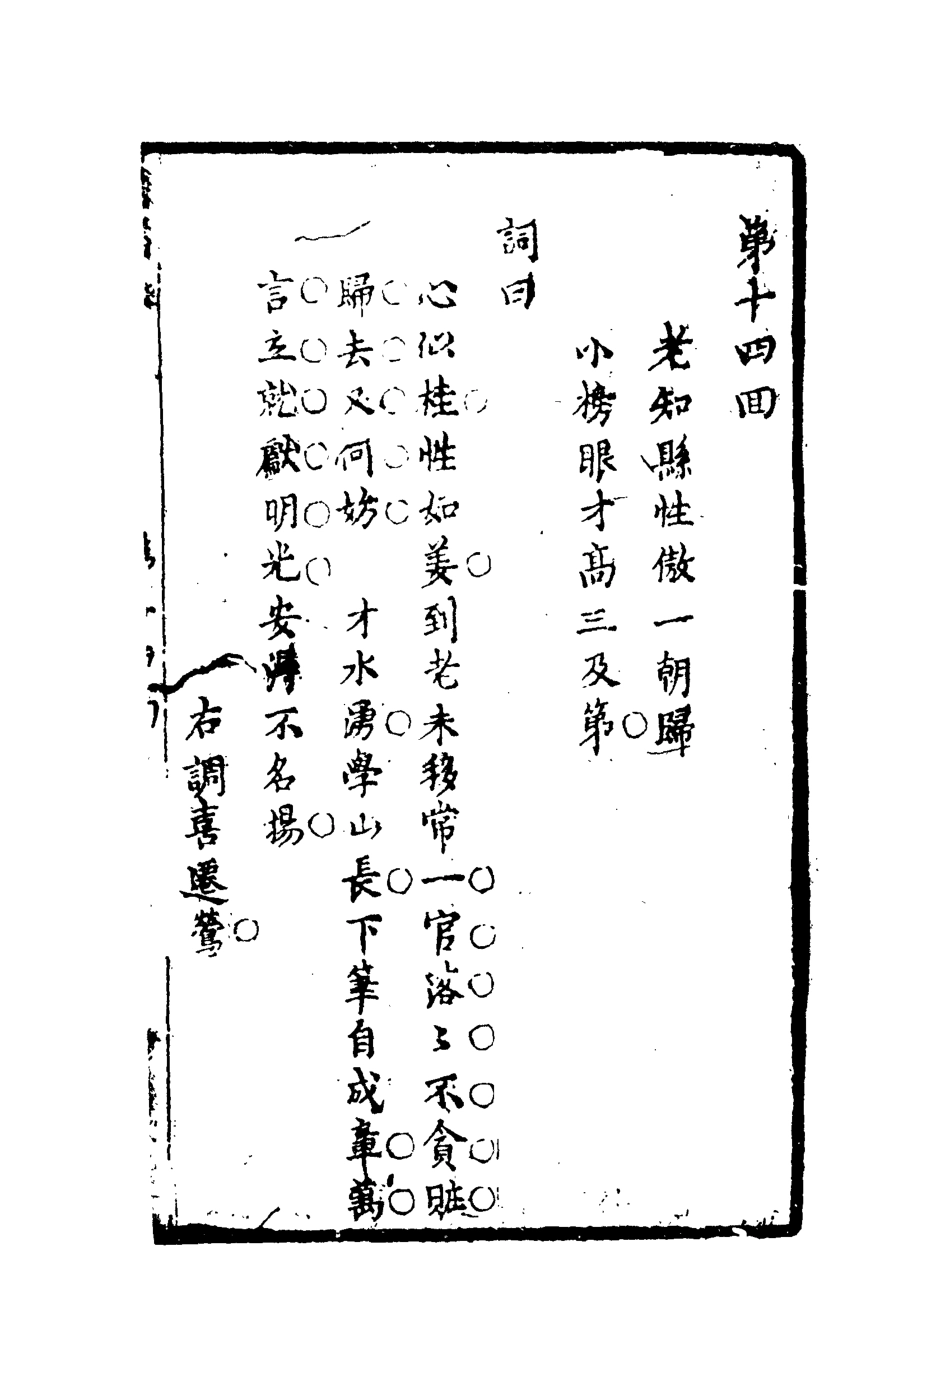 第十四回
老知縣性傲一朝歸
小榜眼才高三及第
詞曰
心似桂性如姜到老未移常一官落〻不貪賍
歸去又何妨　才水湧學山長下筆自成章萬
言立就獻明光安得不名揚
右調喜遷鶯